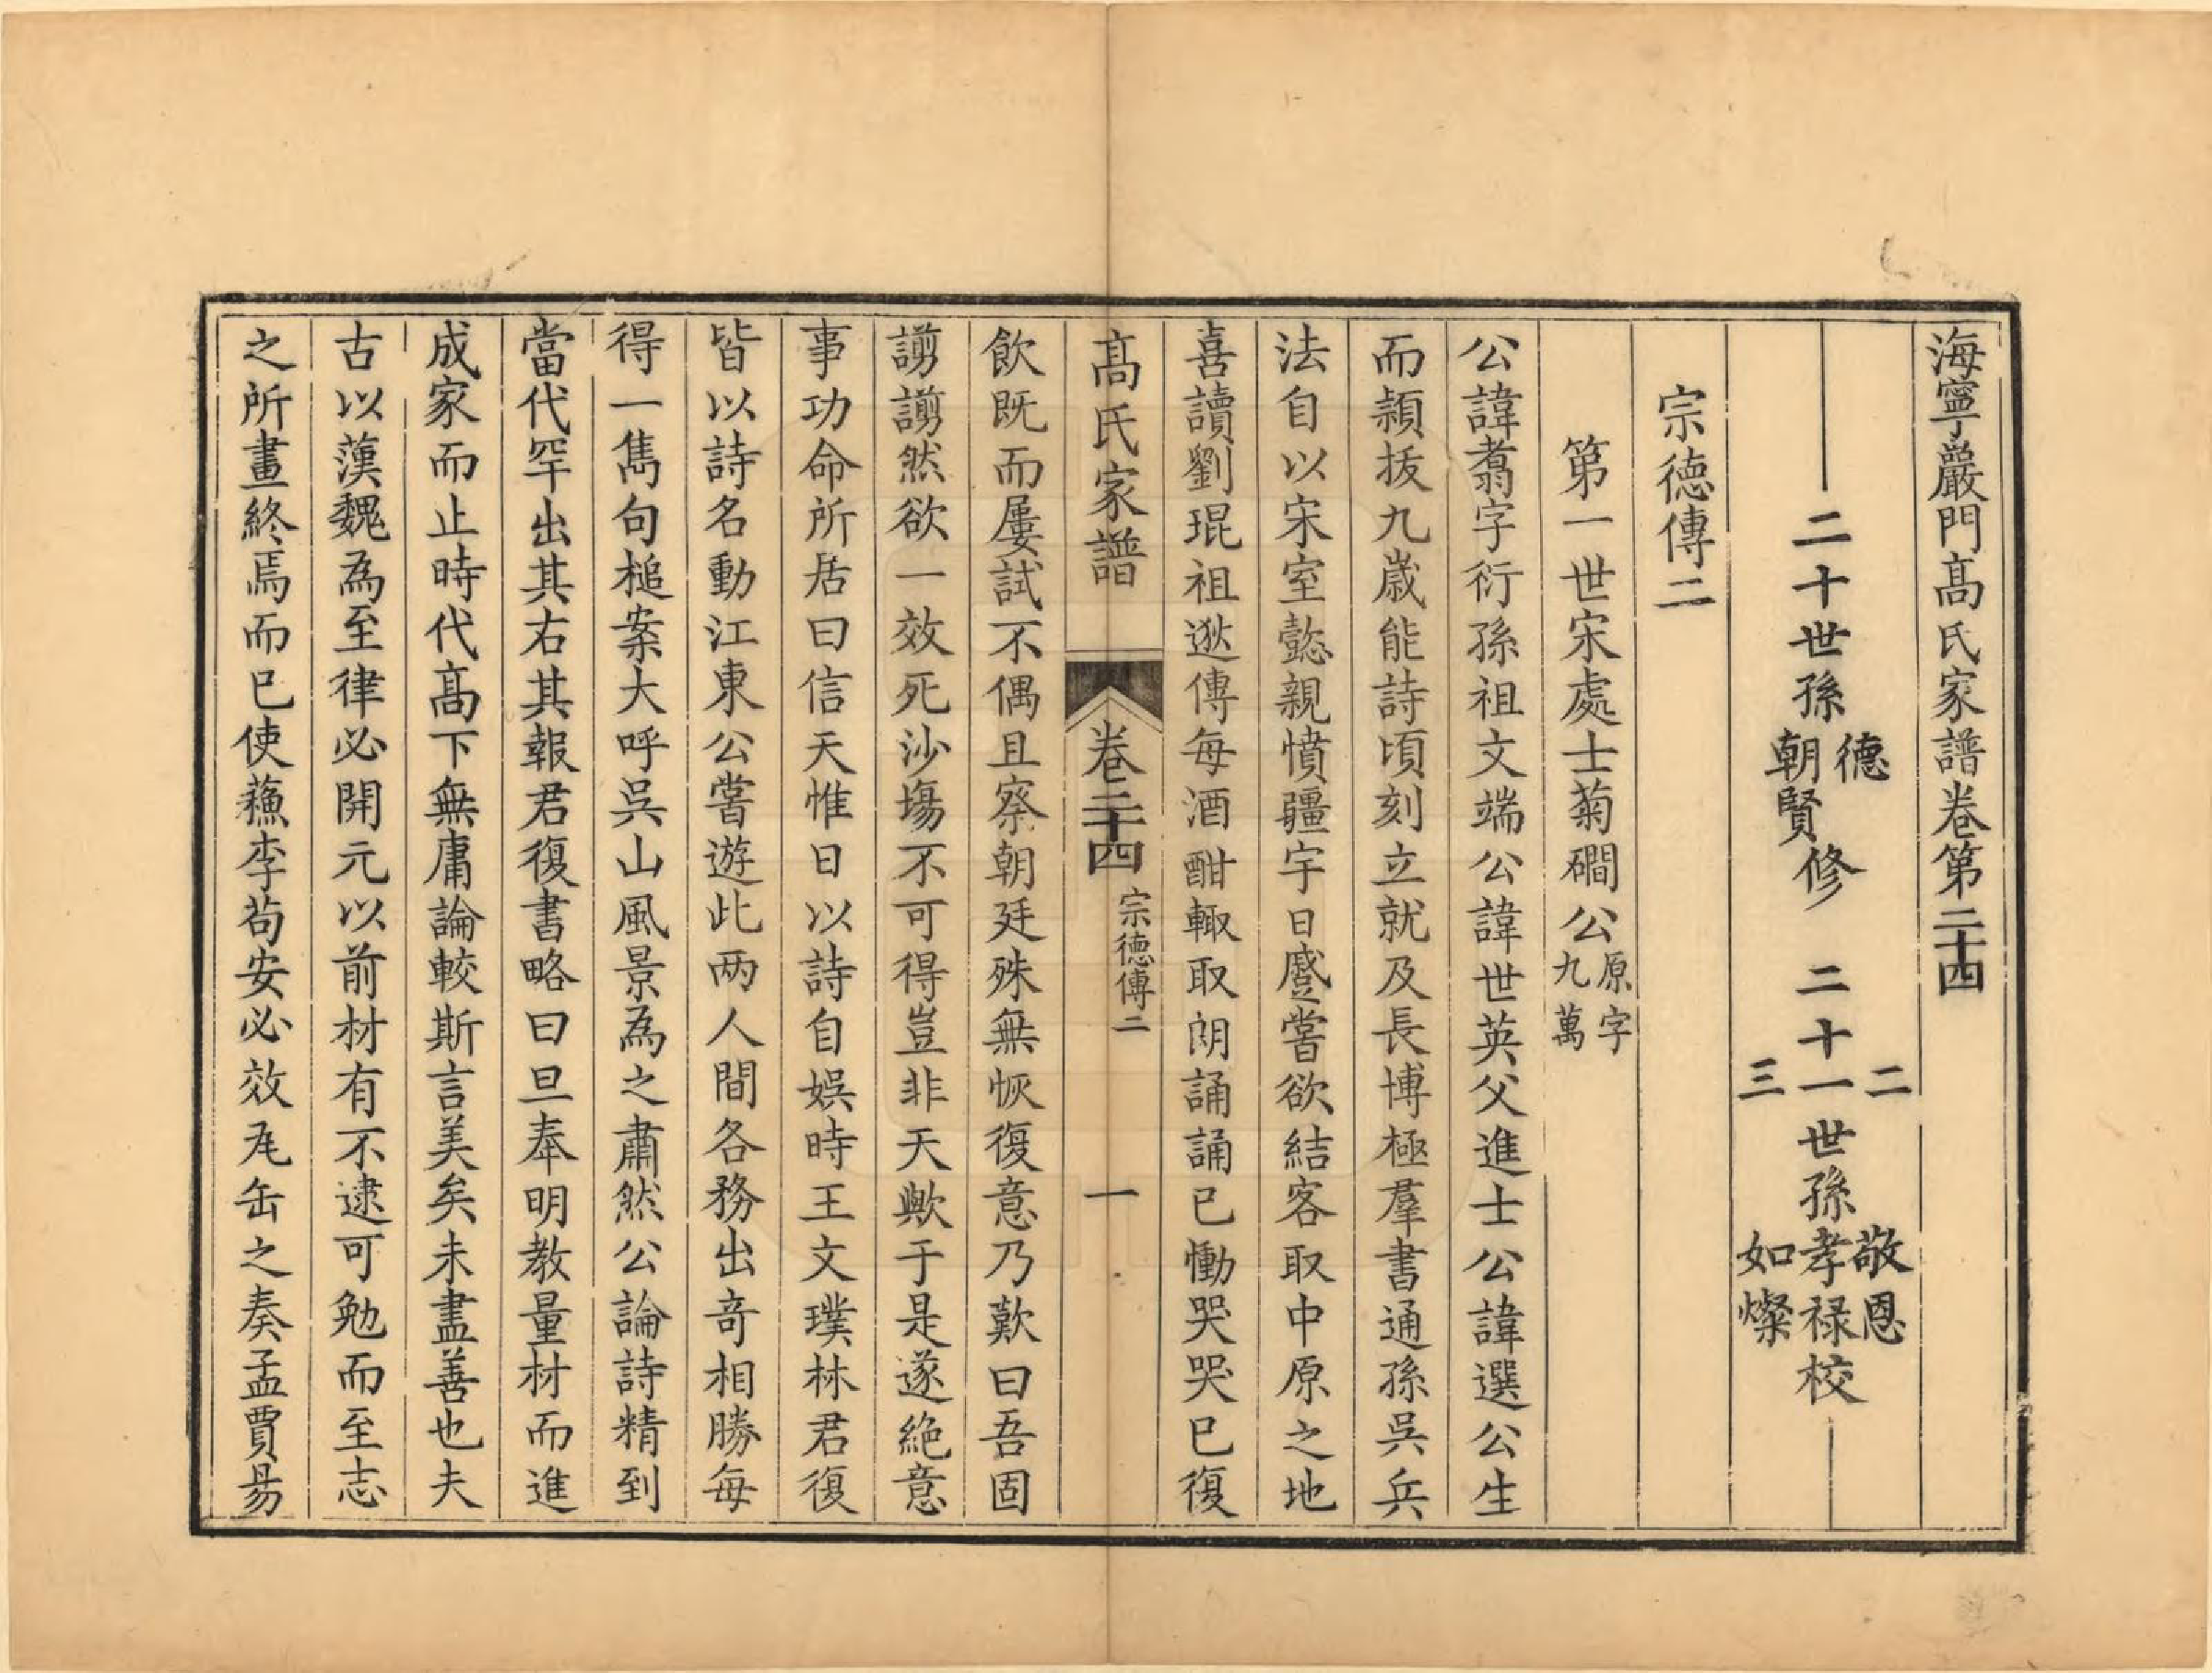 海寧嚴門髙氏家譜卷第二十四
二十世孫德朝賢修　二十一二三世孫敬恩孝禄如燦校
宗德傳二
第一世宋處士菊磵公原字九萬
公諱翥字衍孫祖文端公諱世英父進士公諱選公生
而穎拔九歲能詩頃刻立就及長博極羣書通孫吳兵
法自以宋室懿親憤疆宇日蹙嘗欲結客取中原之地
喜讀劉琨祖逖傳每酒酣輒取朗誦誦已慟哭哭已復
髙氏家譜　卷二十四　宗德傳二　一
飲既而屢試不偶且察朝廷殊無恢復意乃歎曰吾固
謭謭然欲一效死沙塲不可得豈非天歟于是遂絶意
事功命所居曰信天惟日以詩自娛時王文璞林君復
皆以詩名動江東公嘗遊此两人間各務出竒相勝每
得一雋句槌案大呼吳山風景為之肅然公論詩精到
當代罕出其右其報君復書略曰旦奉明教量材而進
成家而止時代髙下無庸論較斯言美矣未盡善也夫
古以漢魏為至律必開元以前材有不逮可勉而至志
之所畫終焉而已使蘓李苟安必效𤬦缶之奏孟賈昜